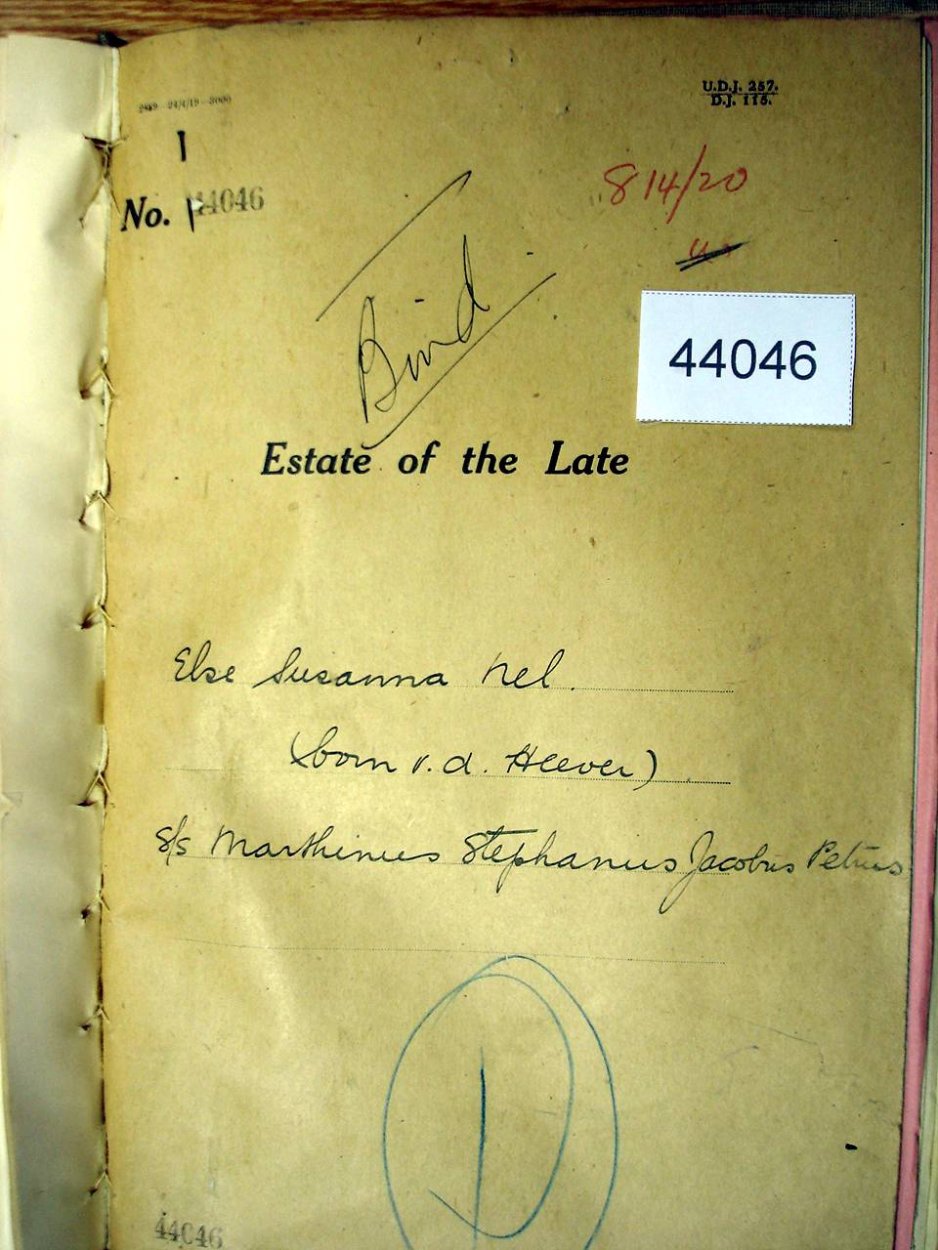 U.D.J. 257.
D.J. 115.
1
No. 44046
814/20
44046
Bind
Estate of the Late
Else Susanna Nel.
(born v.d. Heever)
S/s Marthinus Stephanus Jacobus Petrus
D
44046